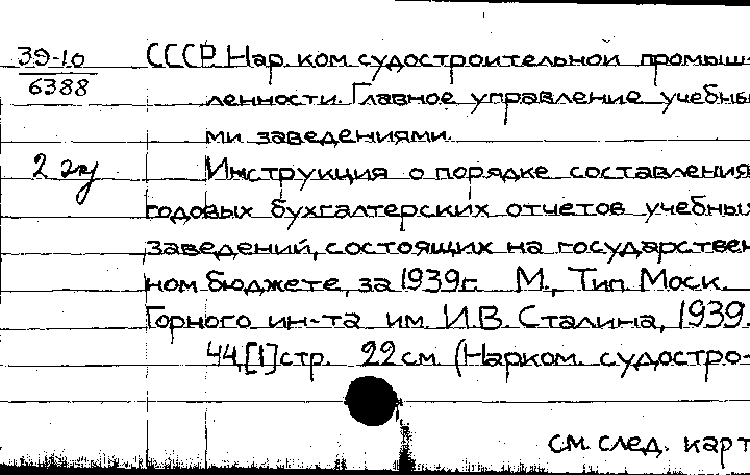 39-10 СССР. Нар. ком. судостроительной промыш-
6388 ленности. Главное управление учебны-
ми заведениями.
2 экз Инструкция о порядке составления
годовых бухгалтерских отчетов учебных
заведений, состоящих на государствен-
ном бюджете, за 1939г. М., Тип. Моск.
Горного ин-та им. И.В. Сталина, 1939.
44,[1]стр. 22см. (Нарком. судостро-
см. след. карт